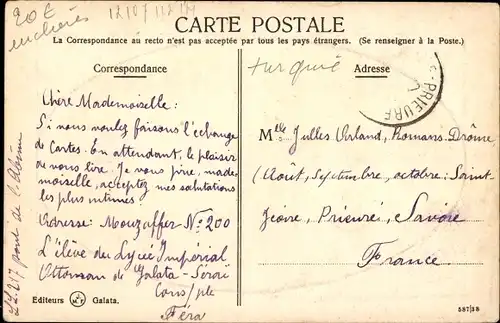 20€
enchères
12107 118 M
CARTE POSTALE
La Correspondance au recto n'est pas acceptée par tous les pays étrangers. (Se renseigner à la Poste.)
Correspondance
turquie
Adresse
PRIEURÉ
Chère Mademoiselle:
Si vous voulez faisons l'échange
de Cartes. En attendant, le plaisir
de vous lire. Je vous prie, made-
moiselle, acceptez mes salutations
les plus intimes.
Adresse: Mouzaffer No 200
L'élève du Lycée Impérial
Ottoman de Galata-Séraï
Cons/ple
Péra
Mlle Julles Orland, Romans-Drôme,
(Août, Septembre, octobre: Saint-
Jeoire, Prieuré, Savoie
France.
22217 pont de l'Abîme
Editeurs M F Galata.
587|38